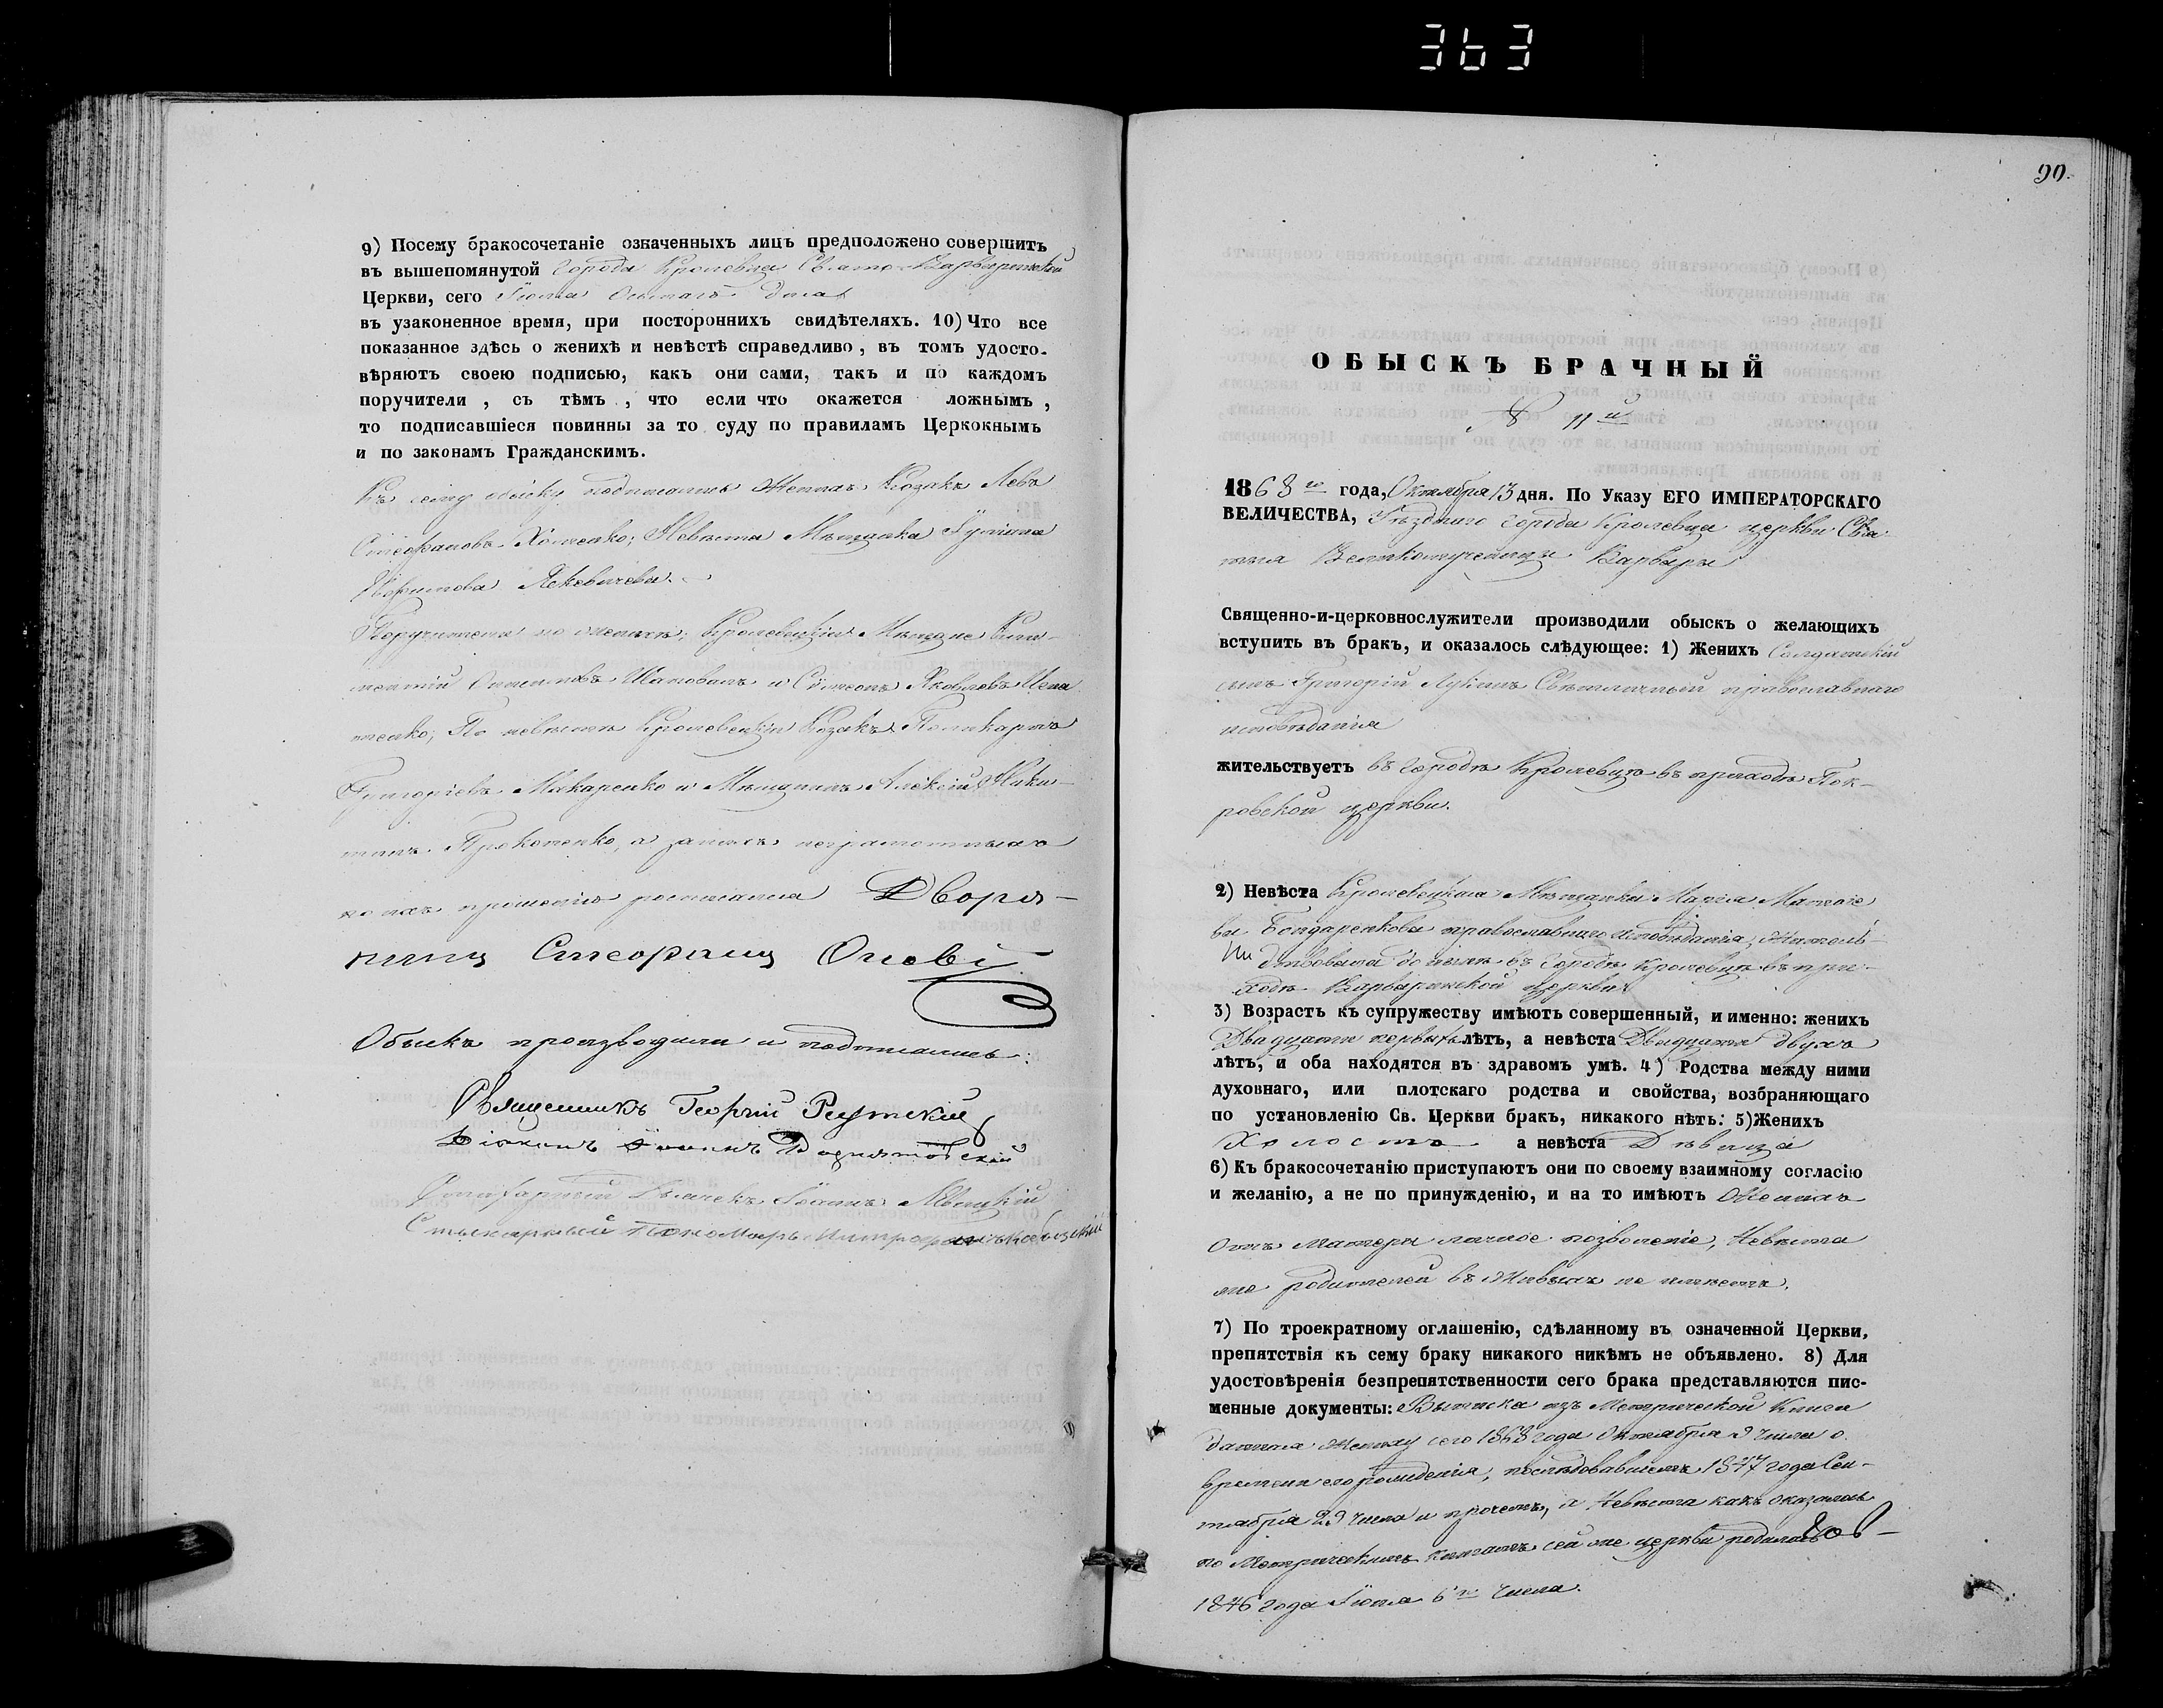 363
9) Посему бракосочетаніе означенныхъ лицъ предположено совершить
въ вышепомянутой города Кролевца Свято-Варваринской
Церкви, сего Іюля дня
въ узаконенное время, при постороннихъ свидѣтеляхъ. 10) Что все
показанное здѣсь о женихѣ и невѣстѣ справедливо, въ томъ удосто-
вѣряютъ своею подписью, какъ они сами, такъ и по каждомъ
поручители, съ тѣмъ, что если что окажется ложнымъ,
то подписавшіеся повинны за то суду по правиламъ Церкокнымъ
и по законамъ Гражданскимъ.
Къ сему обыску подписались Женихъ Козакъ Левъ
Стефановъ Хоменко; Невѣста Мѣщанка Іуліана
Поручители по женихѣ: Кролевецкіе Мѣщане
Шаповалъ и Сѵмеонъ Яковлевъ
по невѣстѣ Кролевецкіи Козакъ Поликарпъ
Григоріевъ Макаренко и Мѣщанинъ Алексій Ники-
тинъ Прокопенко, а за неграмотныхъ
по ихъ прошенію росписался Дворя-
нинъ Стефанъ
Обыскъ производили и подписались:
Священникъ Георгій
Діаконъ Іоаннъ
Дьячекъ Іоаннъ
Пономарь
90.
ОБЫСКЪ БРАЧНЫЙ
№ 11й
1868го года, Октября 13 дня. По Указу ЕГО ИМПЕРАТОРСКАГО
ВЕЛИЧЕСТВА, Уѣзднаго города Кролевца церкви Свя-
тыя Великомученицы Варвары
Священно-и-церковнослужители производили обыскъ о желающихъ
вступить въ бракъ, и оказалось слѣдующее: 1) Женихъ Солдатскій
сынъ Григорій Лукинъ Свѣтличный православнаго
исповѣданія
жительствуетъ въ городѣ Кролевцѣ въ приходѣ Пок-
ровской церкви.
2) Невѣста Кролевецкая Мѣщанка Марія Матѳіе
ва Бондаренкова православнаго исповѣданія, Житель-
ствовала до нынѣ въ городѣ Кролевцѣ въ при-
ходѣ Варваринской церкви
3) Возрастъ къ супружеству имѣютъ совершенный, и именно: женихъ
Двадцати первыхъ лѣтъ, а невѣста Двадцати двухъ
лѣтъ, и оба находятся въ здравомъ умѣ. 4) Родства между ними
духовнаго, или плотскаго родства и свойства, возбраняющаго
по установленію Св. Церкви бракъ, никакого нѣтъ: 5) Женихъ
Холостъ а невѣста Дѣвица
6) Къ бракосочетанію приступаютъ они по своему взаимному согласію
и желанію, а не по принужденію, и на то имѣютъ Женихъ
Отъ Матери личное позволеніе, Невѣста
же родителей въ живыхъ не имѣетъ.
7) По троекратному оглашенію, сдѣланному въ означенной Церкви,
препятствія къ сему браку никакого никѣмъ не объявлено. 8) Для
удостовѣренія безпрепятственности сего брака представляются пис-
менные документы: Выписка изъ Метрической Книги
данная Жениху сего 1868 года Октября 9 числа о
времени его рожденія, послѣдовавшемъ 1847 года Сен-
тября 29 числа и прочемъ, а Невѣста какъ оказалось
по Метрическимъ книгамъ сей же церкви родилась
1846 года Іюля 6го числа.